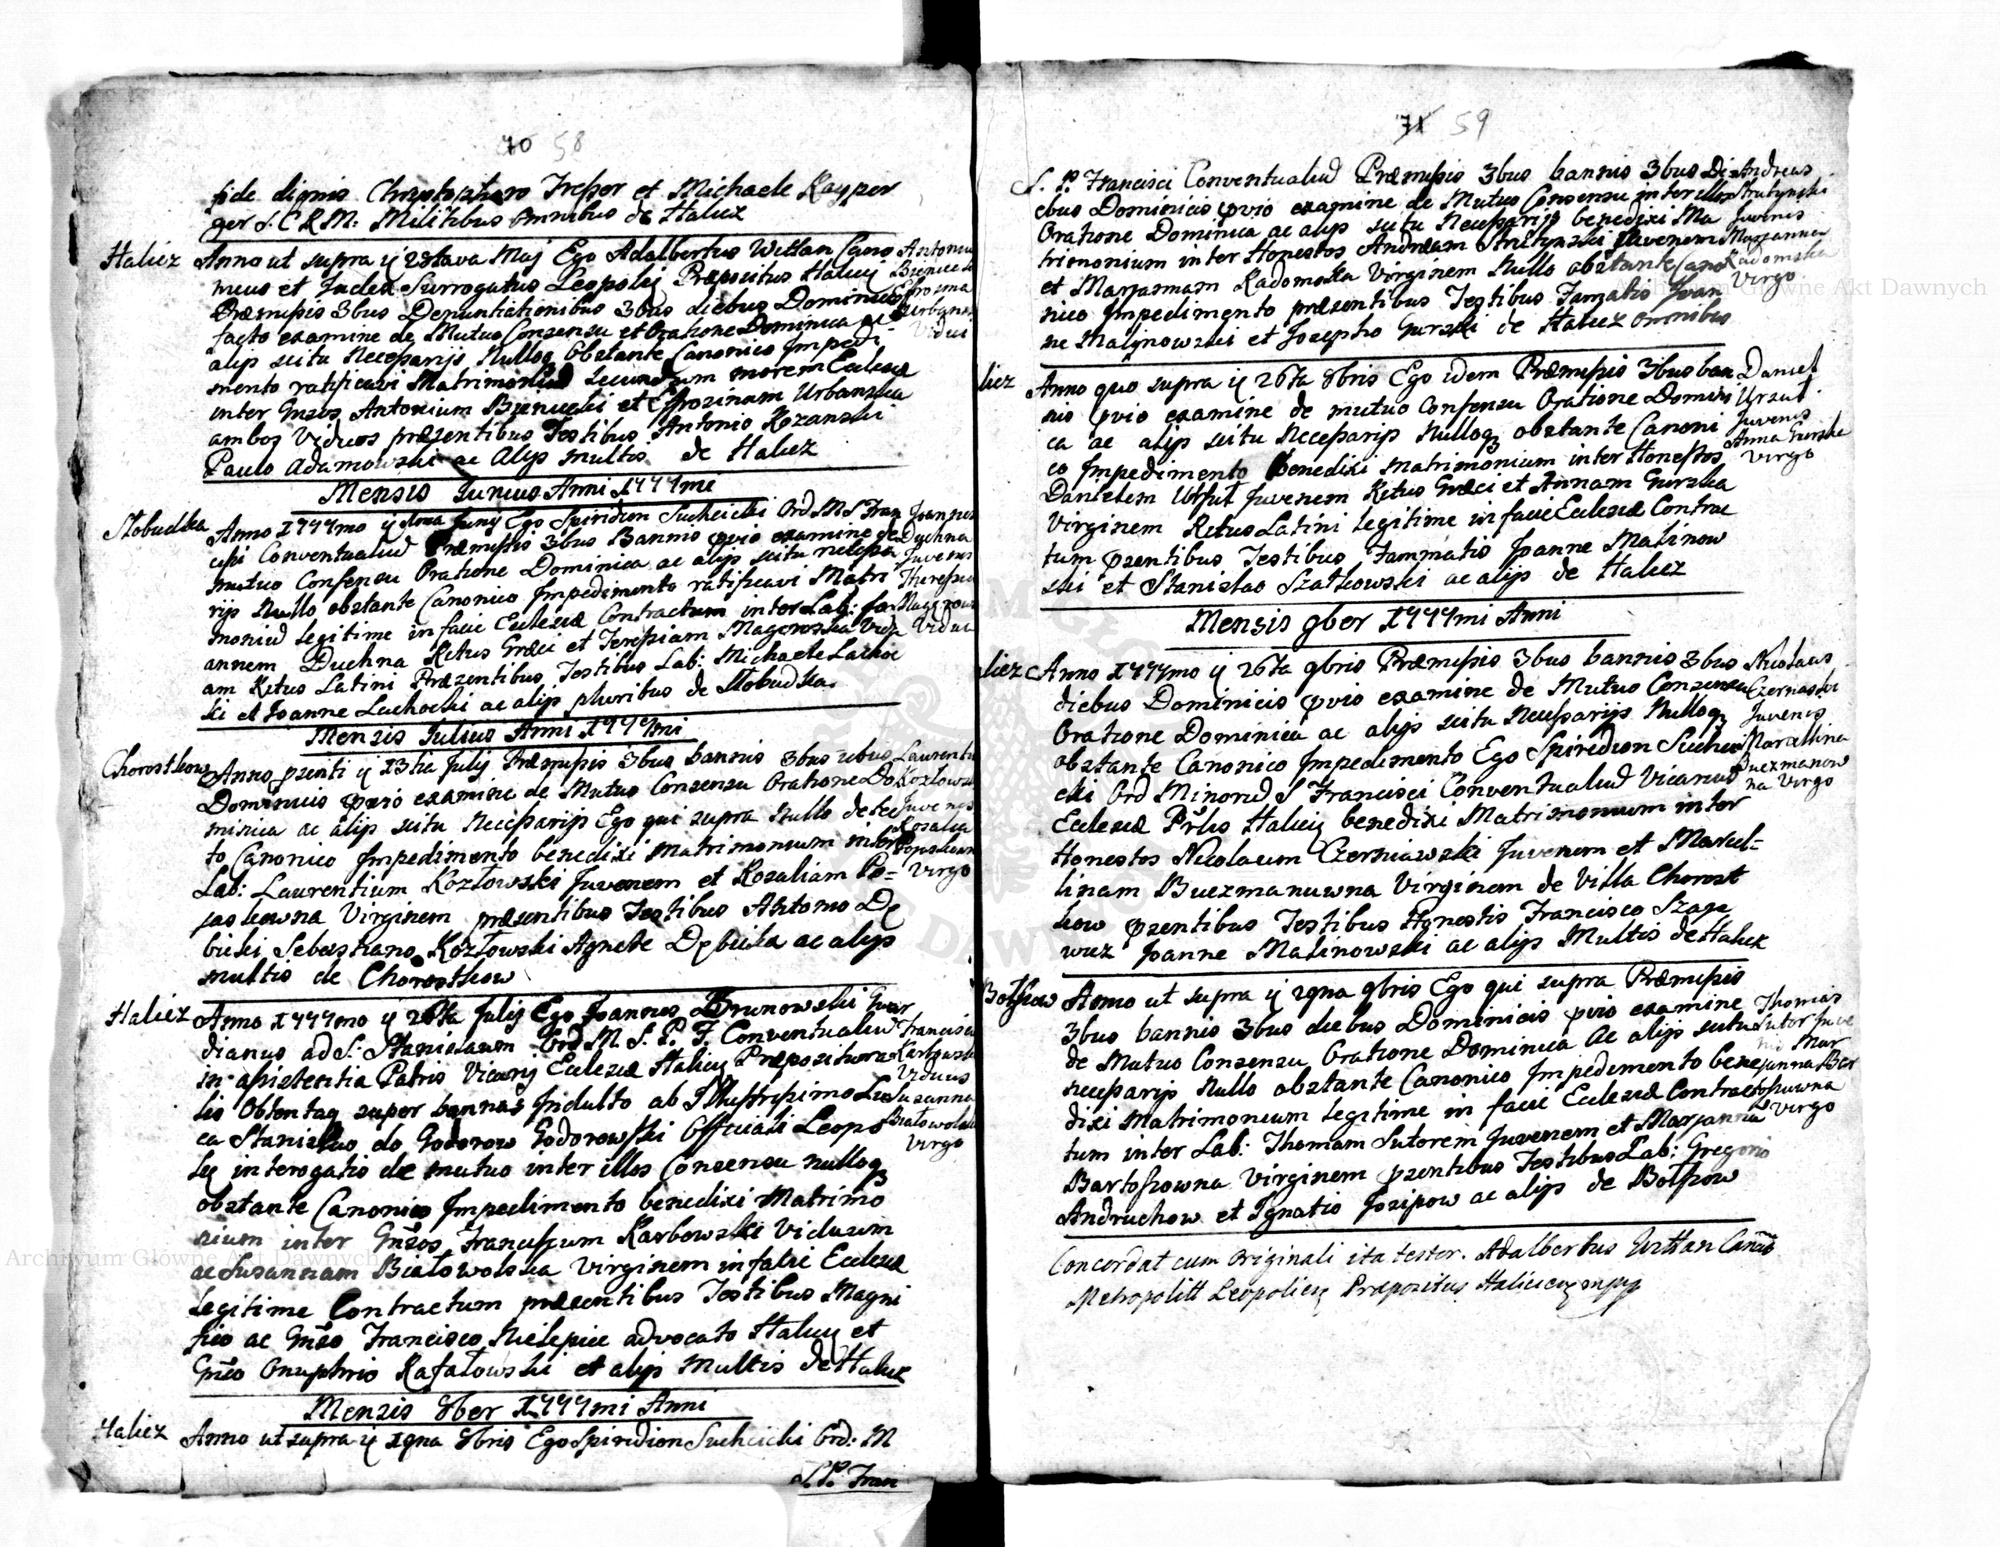 70 58
fide dignis Christophoro Tresser et Michaele Kayper
ger S. C R M: Militibus omnibus de Halicz
Halicz
Anno ut supra ÿ 28tava Maj Ego Adalbertus Wittan Cano
nicus et Judex Surrogatus Leopolj Præpositus Halicij
Præmissis 3bus Denuntiationibus 3bus diebus Dominicis
facto examine de Mutuo Consensu et Oratione Dominica ac
alijs scitu Necessarijs Nulloq Obstante Canonico Impedi
mento ratificavi Matrimonium secundum morem Ecclesiæ
inter Gnsos Antonium Bieniecki et Effrosinam Urbanska
ambos Viduos præsentibus Testibus Antonio Rozanski
Paulo Adamowski ac Alijs multis de Halicz
Antonius
Bieniecki
Efrosina
Urbansk
Vidui
Mensis Junius Anni 1777mi
Słobudka
Anno 1777mo ÿ Juny Ego Spiridion Suchcicki Ord M S Fran
cisci Conventualium Præmissis 3bus Bannis pvio examine de
mutuo Consensu Oratione Dominica ac alijs scitu necessa
rijs Nullo obstante Canonico Impedimento ratificavi Matri
monium legitime in facie Ecclesiæ Contractum inter Lab: Jo
annem Duchna Ritus Græci et Teressiam Magerowska Vidu
am Ritus Latini Præsentibus Testibus Lab: Michaele Lachoc
ki et Joanne Lachocki ac alijs pluribus de Słobudka
Joannes
Duchna
Juvenis
Theressia
Vidua
Mensis Julius Anni 1777mi
Chorostkow
Anno psenti ÿ 13tia Julij Præmissis 3bus bannis 3bus iebus
Dominicis pvio examine de Mutuo Consensu Oratione Do
minica ac alijs scitu Necessarijs Ego qui supra Nullo detec
to Canonico Impedimento benedixi Matrimonium inter
Lab: Laurentium Kozłowski Juvenem et Rosaliam Po=
jaskowna Virginem præsentibus Testibus Antonio Dę
bicki Sebastiano Kozłowski Agnete Dębicka ac alijs
multis de Chorostkow
Laurenti
Kozłowski
Juvenis
Rosalia
Virgo
Halicz
Anno 1777mo ÿ 26ta Julij Ego Joannes Brunowski Guar
dianus ad S: Stanislaum Ord M. S. P. F. Conventualium
in asistentia Patris Vicarij Ecclesiæ Halicij Præpositura
lis Obtentaq super bannas Indulto ab Illustrissimo Lu
ca Stanislao de Godorow Godorowski Officiali Leopo
lij interogatis de mutuo inter illos Consensu nulloq
obstante Canonico Impedimento benedixi Matrimo
nium inter Gnsos Franciscum Karbowski Viduum
ac Susannam Białowolska Virginem in facie Ecclesiæ
legitime Contractum præsentibus Testibus Magni
fico ac Gnso Francisco Nielepiec advocato Halicij et
Gnso Onuphrio Rafałowski et alijs Multis de Halicz
Francisc
Karbowski
Viduus
Susanna
Białowolska
Virgo
Mensis 8ber 1777mi Anni
Halicz
Anno ut supra ÿ 19na 8bris Ego Spiridion Suchcicki Ord: M
S. P. Fran
71 59
S. P. Francisci Conventualium Præmissis 3bus bannis 3bus Di
ebus Dominicis pvio examine de Mutuo Consensu inter illos
Oratione Dominica ac alijs scitu Necessarijs benedixi Ma
trimonium inter Honestos Andream Strutynski Juvenem
et Marjannam Radomska Virginem Nullo obstante Cano
nico Impedimento præsentibus Testibus Famatis Joan
ne Malinowski et Josepho Gurski de Halicz omnibus
Andreas
Strutynski
Juvenis
Marjanna
Radomska
Virgo
licz
Anno quo supra ÿ 26ta 8bris Ego idem Præmissis 3bus ban
nis pvio examine de mutuo Consensu Oratione Domini
ca ac alijs scitu Necessarijs Nulloq obstante Canoni
co Impedimento Benedixi matrimonium inter Honestos
Danielem Ursut Juvenem Ritus Græci et Annam Gurska
Virginem Ritus Latini legitime in facie Ecclesiæ Contrac
tum psentibus Testibus Fammatis Joanne Malinow
ski et Stanislao Szałkowski ac alijs de Halicz
Daniel
Ursut
Juvenis
Anna Gurska
Virgo
Mensis 9ber 1777mi Anni
licz
Anno 1777mo ÿ 26ta 9bris Præmissis 3bus bannis 3bus
diebus Dominicis pvio examine de Mutuo Consensu
Oratione Dominica ac alijs scitu Necessarijs Nulloq
obstante Canonico Impedimento Ego Spiridion Suchci
cki Ord Minorum S Francisci Conventualium Vicarius
Ecclesiæ Halicij benedixi Matrimonium inter
Honestos Nicolaum Czerniawski Juvenem et Marcel=
linam Buczmanuwna Virginem de Villa Chorost
kow psentibus Testibus Honestis Francisco Szaje
wicz Joanne Malinowski ac alijs Multis de Halicz
Nicolaus
Czerniaski
Juvenis
Marcellina
Buczmanow
na Virgo
Bołszow
Anno ut supra ÿ 29na 9bris Ego qui supra Præmissis
3bus bannis 3bus diebus Dominicis pvio examine
de Mutuo Consensu Oratione Dominica ac alijs scitu
necessarijs Nullo obstante Canonico Impedimento bene
dixi Matrimonium legitime in facie Ecclesiæ Contrac
tum inter Lab: Thomam Sutorem Juvenem et Marjannam
Bartoszowna Virginem psentibus Testibus Lab: Gregorio
Andruchow et Ignatio Josipow ac alijs de Bołszow
Thomas
Sutor Juve
nis Mar
janna Bar
toszuwna
Virgo
Concordat cum Originali ita testor. Adalbertus Wittan Canus
Metropolitt Leopoliensis Præpositus Haliciensis mpp
Archiwum Główne Akt Dawnych
Archiwum Główne Akt Dawnych